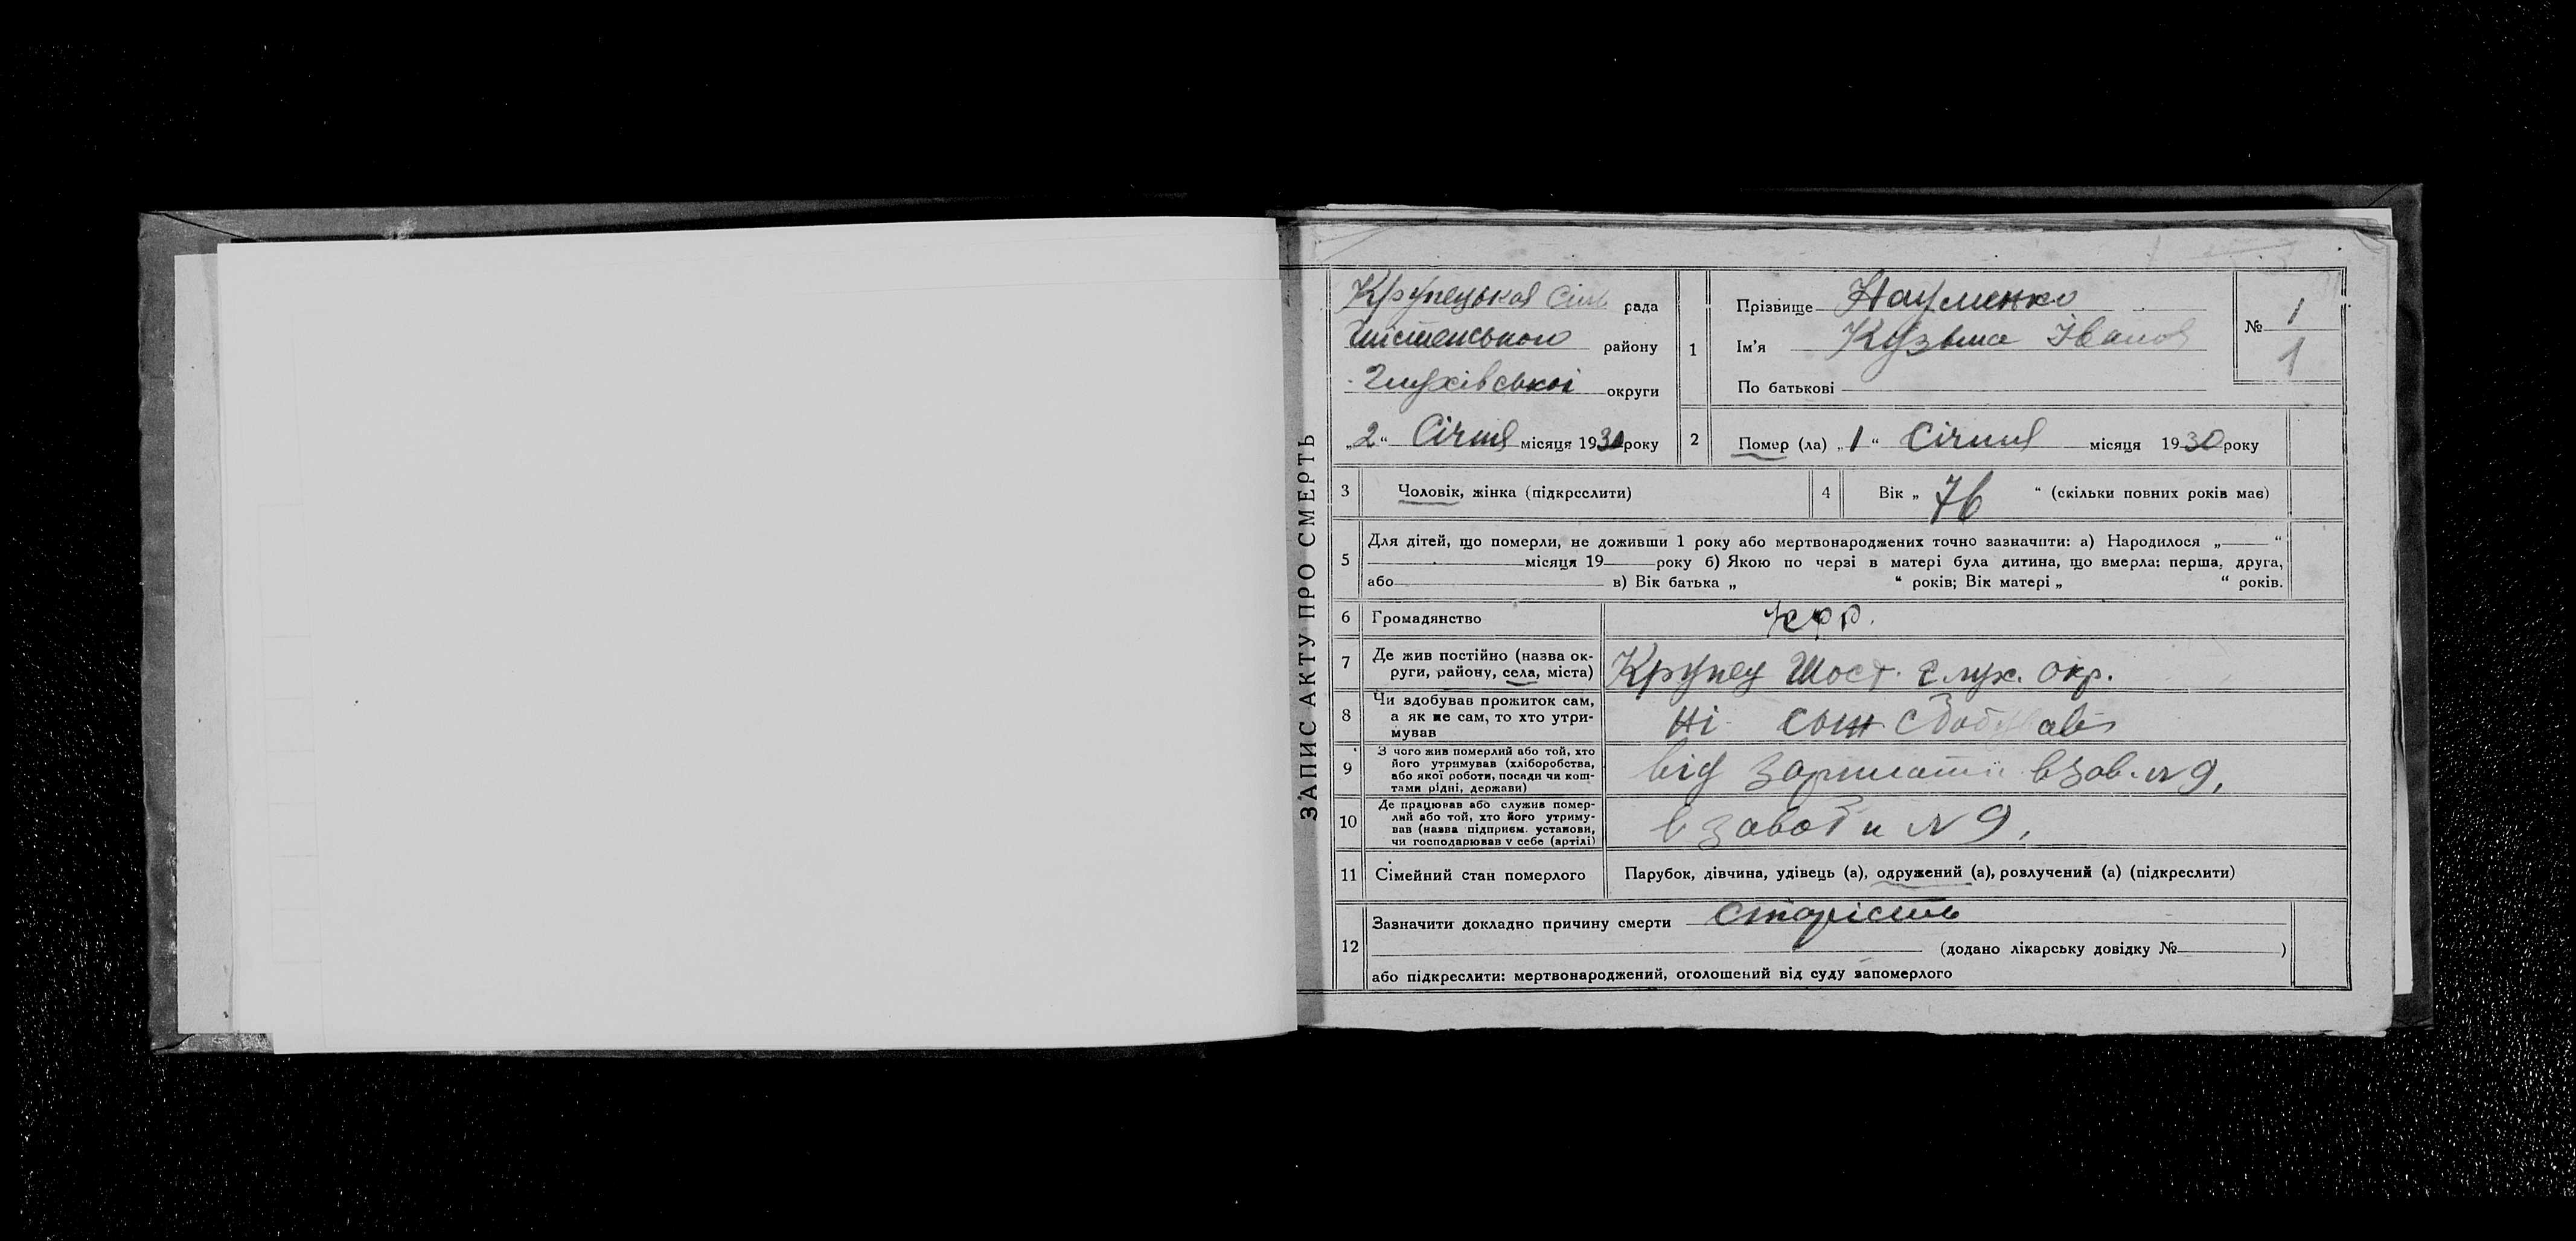 ЗАПИС АКТУ ПРО СМЕРТЬ
Крупецька Сіль рада
Шостенського району
Глухівської округи
„2“ Січня місяця 1930 року
1
Прізвище Науменко
Ім'я Кузьма Іванов
По батькові
№ 1
1
2 Помер (ла) „1“ Січня місяця 1930 року
3 Чоловік, жінка (підкреслити)
4 Вік „ 76 “ (скільки повних років має)
5 Для дітей, що померли, не доживши 1 року або мертвонароджених точно зазначити: а) Народилося „ “
місяця 19 року б) Якою по черзі в матері була дитина, що вмерла: перша, друга,
або в) Вік батька „ “ років; Вік матері „ “ років.
6 Громадянство
7 Де жив постійно (назва ок-
руги, району, села, міста)
Крупец Шост. Глух. окр.
8 Чи здобував прожиток сам,
а як не сам, то хто утри-
мував
Ні сын
9 З чого жив померлий або той, хто
його утримував (хліборобства,
або якої роботи, посади чи кош-
тами рідні, держави)
від зарплати в зав. №9.
10 Де працював або служив помер-
лий або той, хто його утриму-
вав (назва підприєм. установи,
чи господарював у себе (артілі)
в заводи №9.
11 Сімейний стан померлого Парубок, дівчина, удівець (а), одружений (а), розлучений (а) (підкреслити)
12 Зазначити докладно причину смерти старість
(додано лікарську довідку № )
або підкреслити: мертвонароджений, оголошений від суду запомерлого